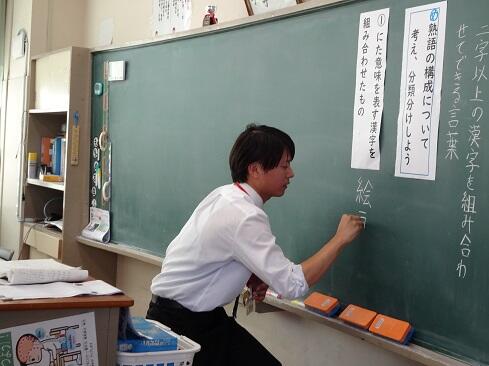 二字以上の漢字を組み合わ
せてできる言葉
め 熟語の構成について
考え、分類分けしよう
① にた意味を表す漢字を
組み合わせたもの
絵